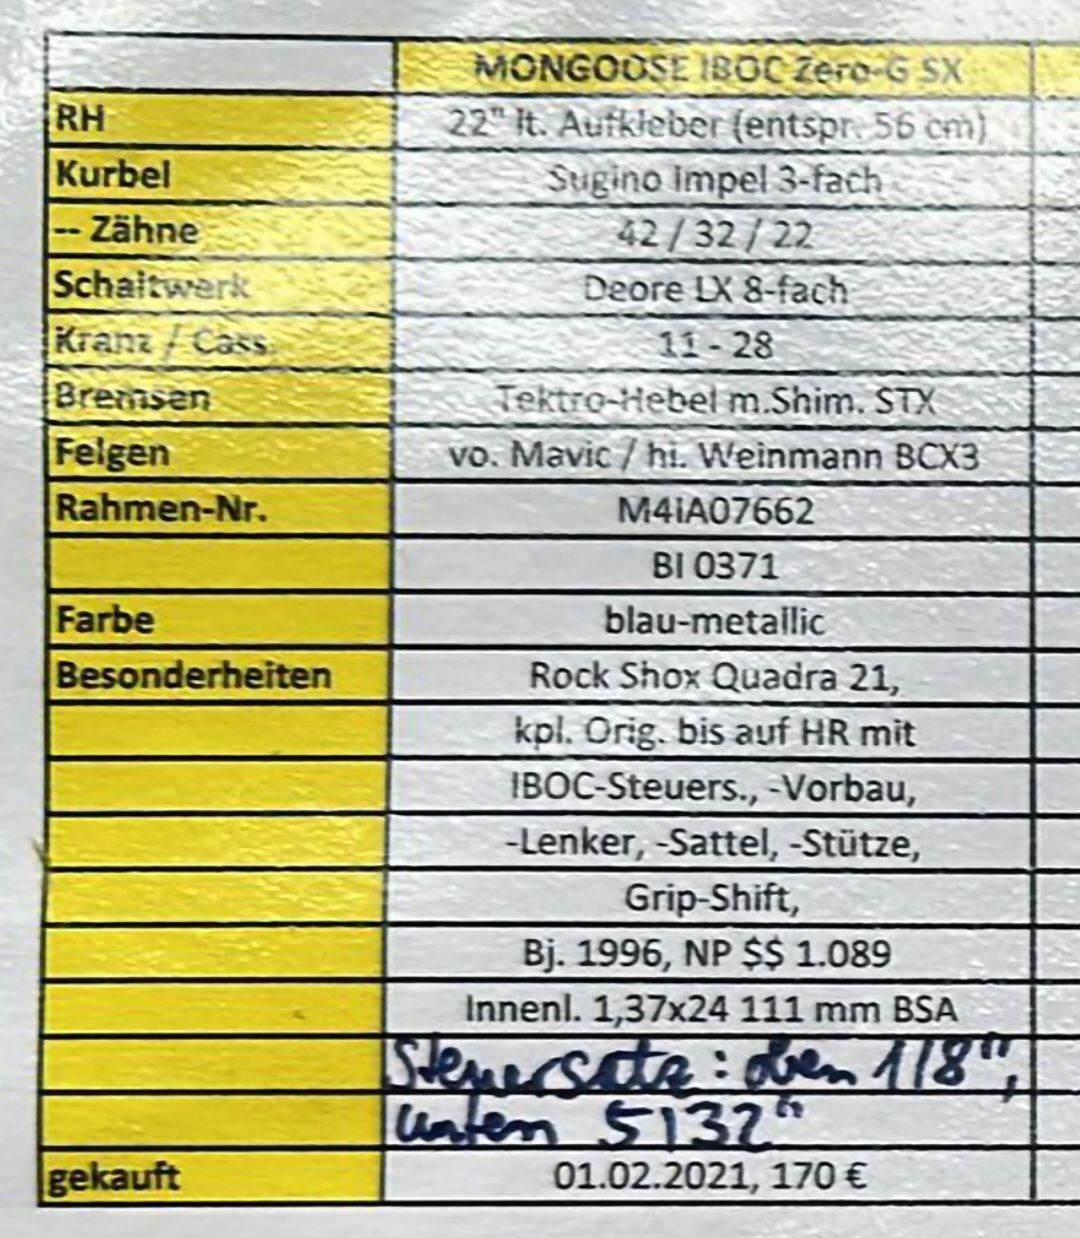 MONGOOSE IBOC Zero-G SX
RH 22" lt. Aufkleber (entspr. 56 cm)
Kurbel Sugino Impel 3-fach
-- Zähne 42 / 32 / 22
Schaltwerk Deore LX 8-fach
Kranz / Cass. 11 - 28
Bremsen Tektro-Hebel m.Shim. STX
Felgen vo. Mavic / hi. Weinmann BCX3
Rahmen-Nr. M4iA07662
BI 0371
Farbe blau-metallic
Besonderheiten Rock Shox Quadra 21,
kpl. Orig. bis auf HR mit
IBOC-Steuers., -Vorbau,
-Lenker, -Sattel, -Stütze,
Grip-Shift,
Bj. 1996, NP $$ 1.089
Innenl. 1,37x24 111 mm BSA
Steuersatz: oben 1/8",
unten 5/32"
gekauft 01.02.2021, 170 €